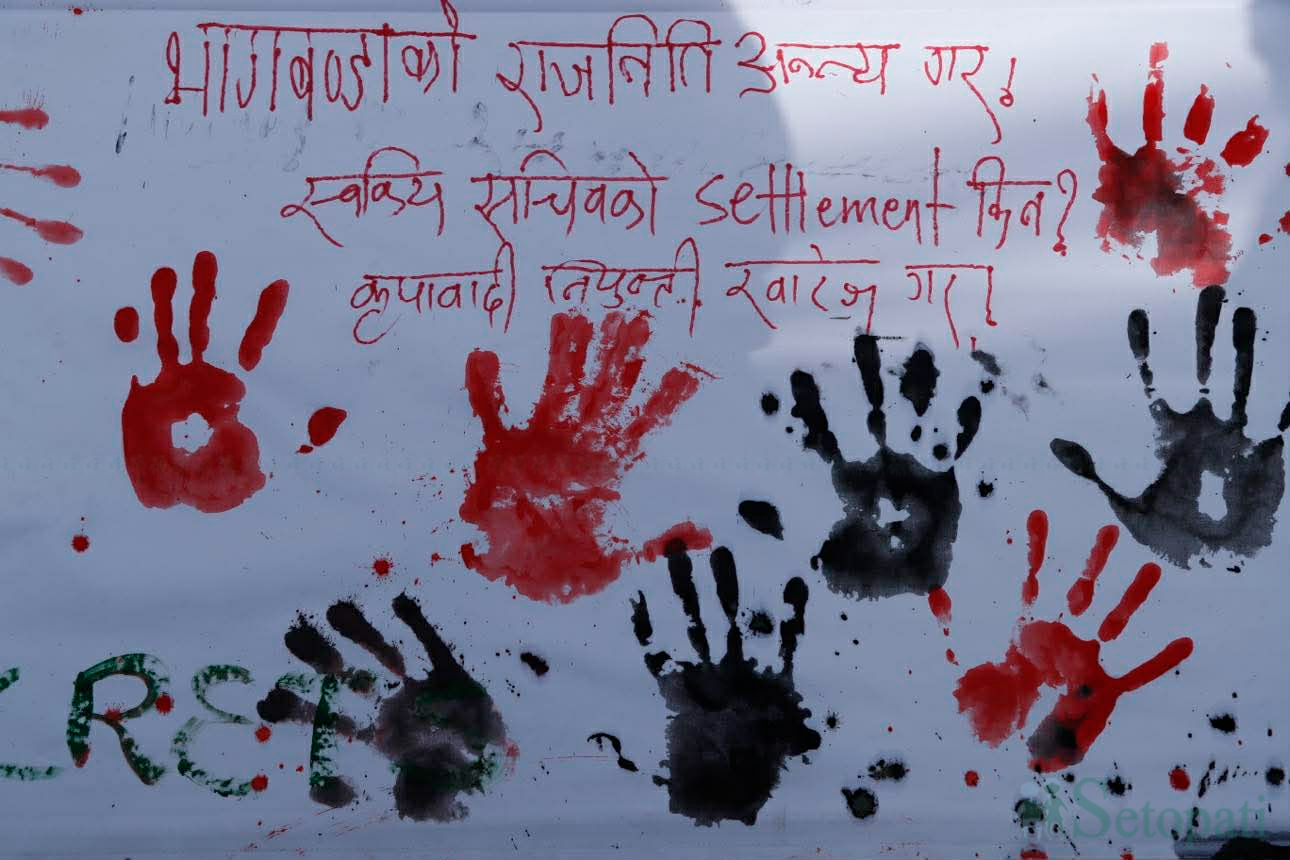 भागबण्डाको राजनिति अन्त्य गर!
स्वकिय सचिवको settlement किन?
कृपावादी नियुक्ती खारेज गर!
RET
Setopati